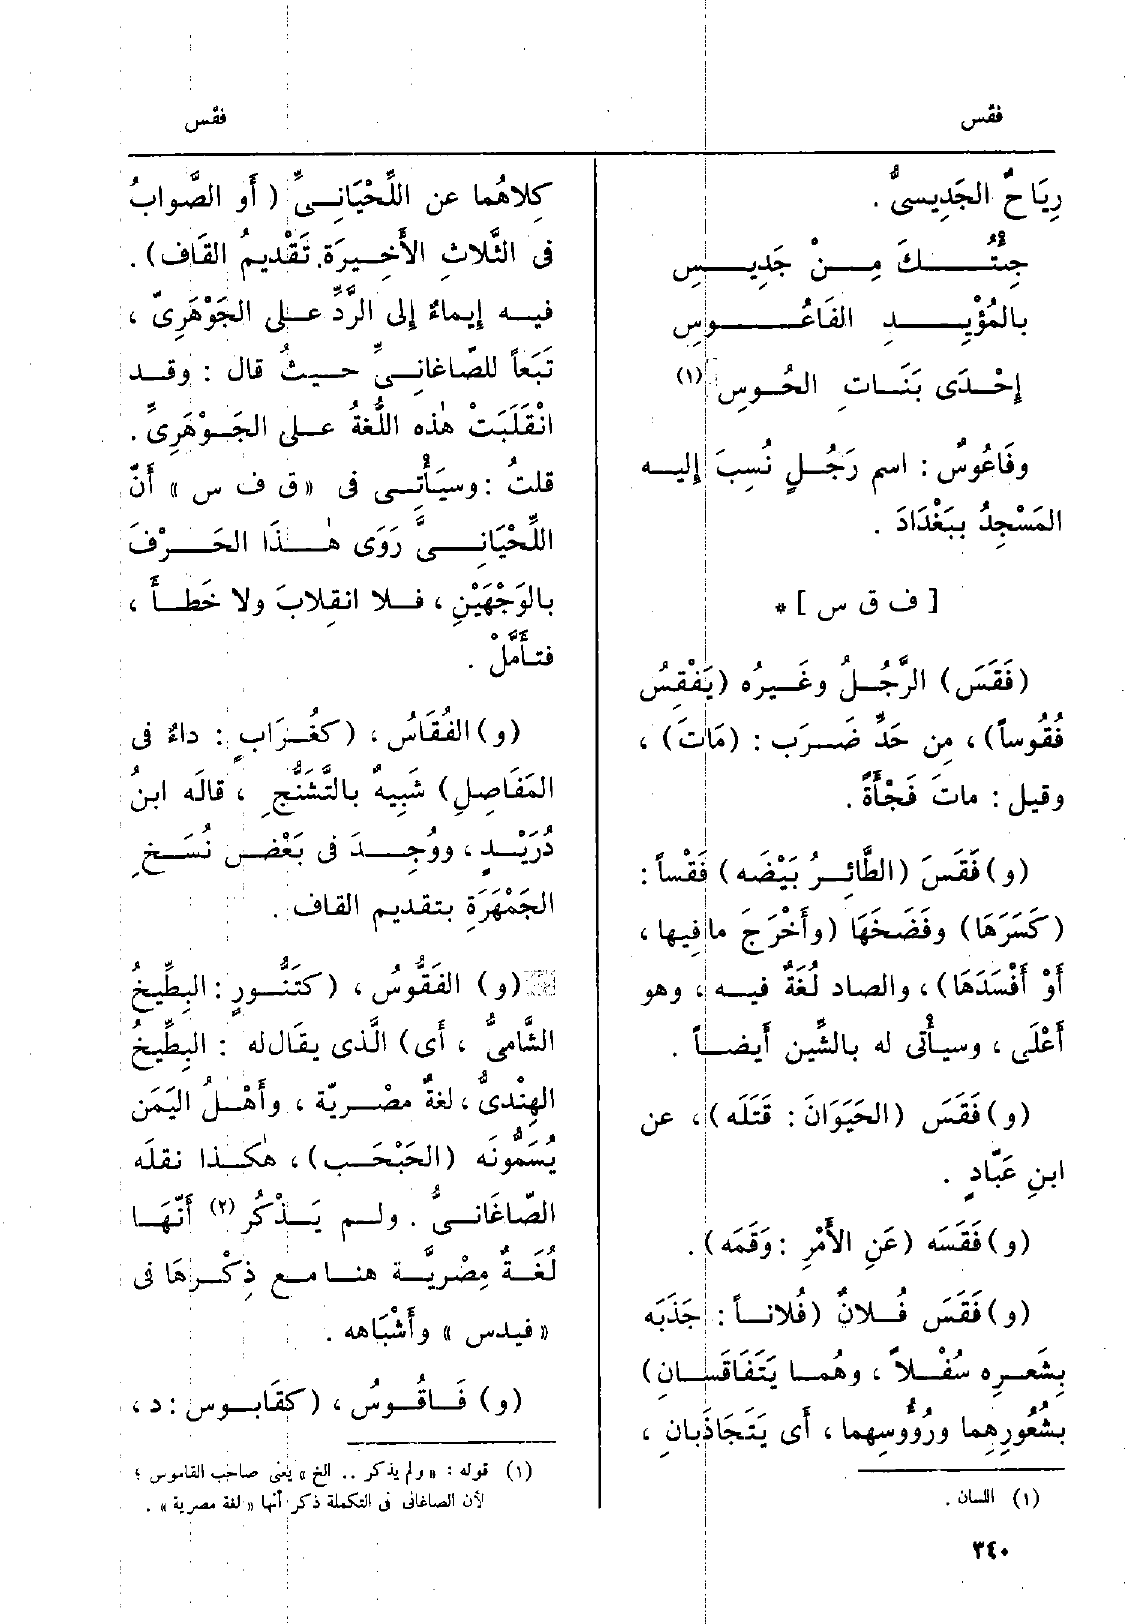 فقس
فقس
رِيَاحٌ الجَدِيسىُّ .
جِئْتُكَ مِنْ جَدِيسِ
بالمُؤْيِدِ الفَاعُوسِ
إِحْدَى بَنَاتِ الحُوسِ (١)
وفَاعُوسٌ : اسم رَجُلٍ نُسِبَ إِليه
المَسْجِدُ ببَغْدَادَ .
[ ف ق س ] *
(فَقَسَ) الرَّجُلُ وغَيرُه (يَفْقِسُ
فُقُوساً) ، مِن حَدِّ ضَرَب : (مَاتَ) ،
وقيل : ماتَ فَجْأَةً .
(و) فَقَسَ (الطَّائِرُ بَيْضَه) فَقْساً :
(كَسَرَهَا) وفَضَخَهَا (وأَخْرَجَ مافيها ،
أَوْ أَفْسَدَهَا) ، والصاد لُغَةٌ فيه ، وهو
أَعْلَى ، وسيأْتى له بالشِّين أَيضاً .
(و) فَقَسَ (الحَيَوَانَ : قَتَلَه) ، عن
ابنِ عَبّادٍ .
(و) فَقَسَه (عَنِ الأَمْرِ : وَقَمَه) .
(و) فَقَسَ فُلانٌ (فُلاناً : جَذَبَه
بِشَعرِه سُفْلاً ، وهُما يَتَفَاقَسَانِ)
بشُعُورِهِما ورُؤُوسِهما ، أَى يَتَجَاذَبانِ ،
(١) اللسان .
كِلاهُما عن اللِّحْيَانِىِّ ( أَو الصَّوابُ
فى الثَّلاثِ الأَخِيرَة. تَقْدِيمُ القَاف) .
فيه إِيماءٌ إِلى الرَّدِّ على الجَوْهَرِىّ ،
تَبَعاً للصّاغانِىِّ حيثُ قال : وقد
انْقَلَبَتْ هٰذه اللُّغةُ على الجَوْهَرِىِّ .
قلتُ : وسيَأْتِى فى «ق ف س» أَنَّ
اللِّحْيَانِىَّ رَوَى هٰذَا الحَرْفَ
بالوَجْهَيْنِ ، فلا انقِلابَ ولا خَطأَ ،
فتأَمَّلْ .
(و) الفُقَاسُ ، (كغُرَابٍ : داءٌ فى
المَفَاصِلِ) شَبِيهٌ بالتَّشَنُّجِ ، قالَه ابنُ
دُرَيْدٍ ، ووُجِدَ فى بَعْض نُسَخِ
الجَمْهَرَةِ بتقديم القاف .
(و) الفَقُّوسُ ، (كتَنُّورٍ : البِطِّيخُ
الشَّامىُّ ، أَى) الَّذى يقَال‌له : البِطِّيخُ
الهِنْدىُّ ، لغةٌ مصْرِيّة ، وأَهْلُ اليَمَن
يُسَمُّونَه (الحَبْحَب) ، هٰكذا نقلَه
الصّاغَانىُّ . ولم يَذْكُر (٢) أَنَّهَا
لُغَةٌ مِصْرِيَّة هنا مع ذِكْرِهَا فى
« فيدس » وأَشْبَاهه .
(و) فَاقُوسُ ، (كقَابوس : د ،
(١) قوله : « ولم يذكر .. الخ » يعنى صاحب القاموس ؛
لأن الصاغانى فى التكملة ذكر أنها « لغة مصرية » .
٣٤٠